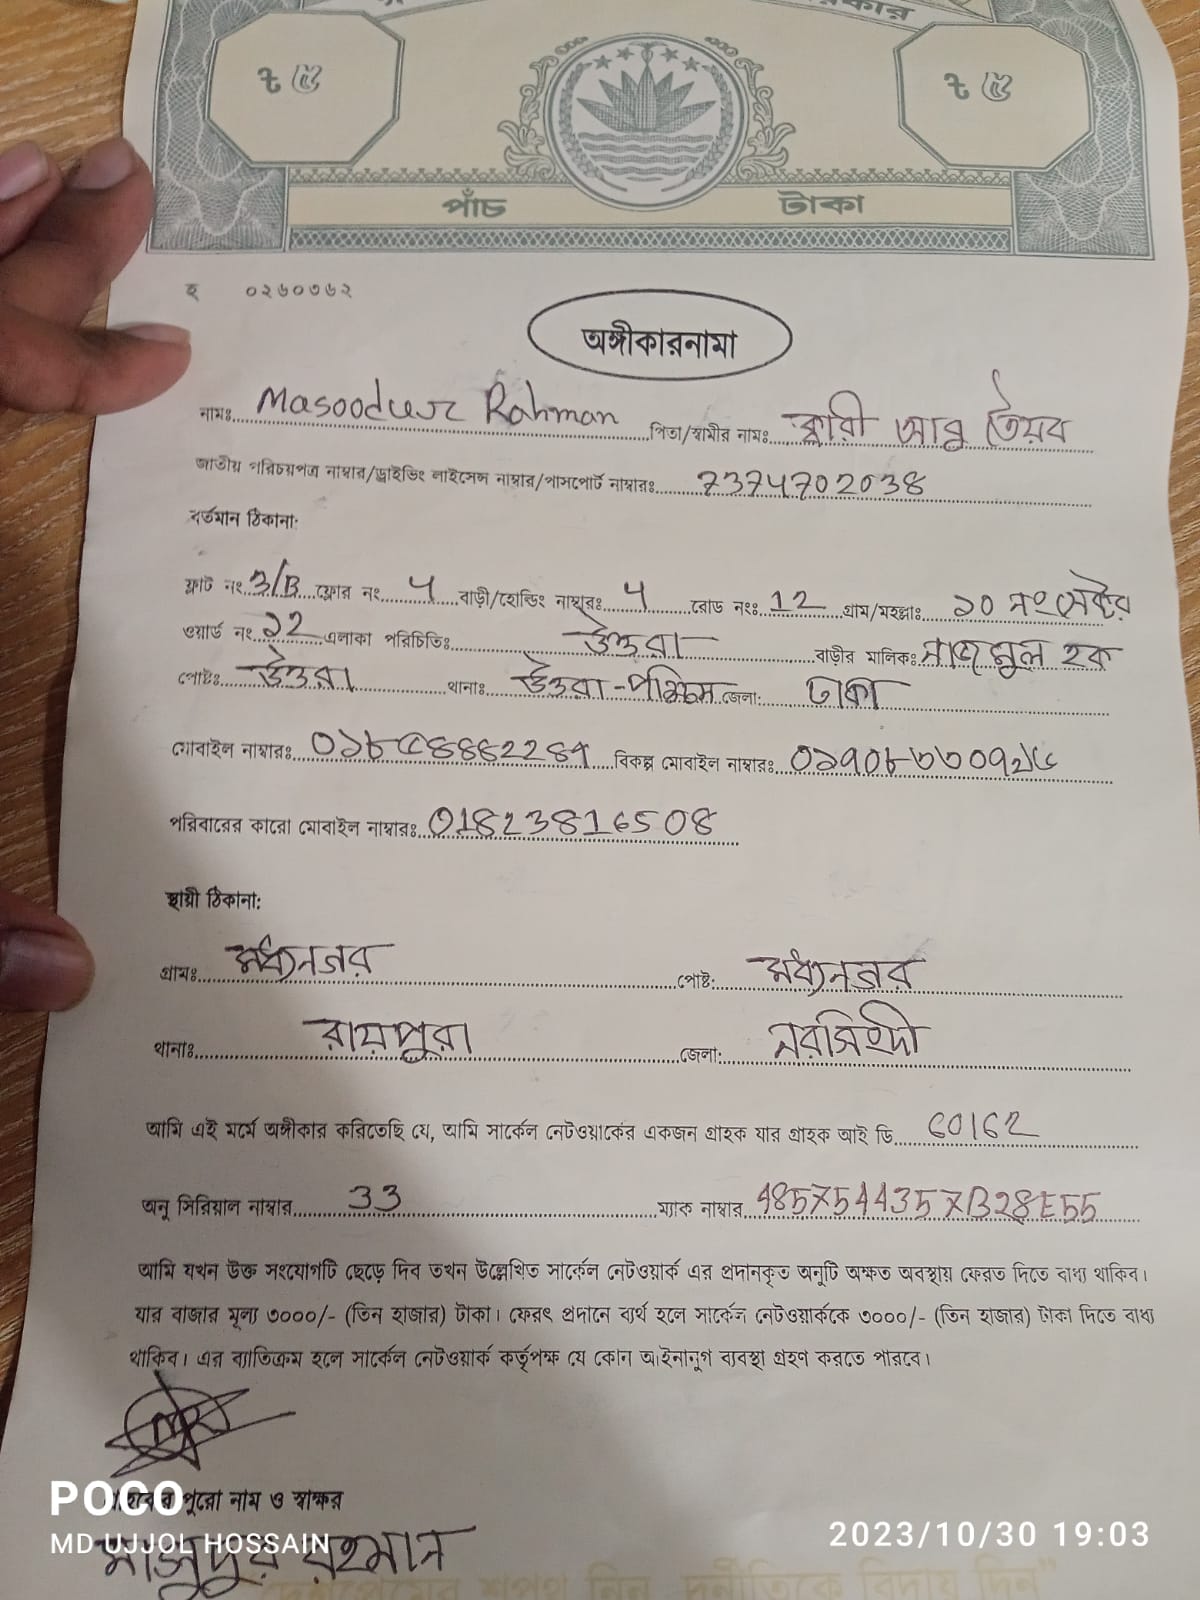 ৳ ৫ ৳ ৫
পাঁচ টাকা
হ ০২৬০৩৬২
অঙ্গীকারনামা
নামঃ Masoodur Rahman পিতা/স্বামীর নামঃ ক্বারী আবু তৈয়ব
জাতীয় পরিচয়পত্র নাম্বার/ড্রাইভিং লাইসেন্স নাম্বার/পাসপোর্ট নাম্বারঃ 7374702038
বর্তমান ঠিকানা:
ফ্লাট নং 3/B ফ্লোর নং 4 বাড়ী/হোল্ডিং নাম্বারঃ 4 রোড নংঃ 12 গ্রাম/মহল্লাঃ ১০ নং সেক্টর
ওয়ার্ড নং ১২ এলাকা পরিচিতিঃ উত্তরা বাড়ীর মালিকঃ নাজমুল হক
পোষ্টঃ উত্তরা থানাঃ উত্তরা-পশ্চিম জেলা: ঢাকা
মোবাইল নাম্বারঃ বিকল্প মোবাইল নাম্বারঃ
পরিবারের কারো মোবাইল নাম্বারঃ 01823816508
স্থায়ী ঠিকানা:
গ্রামঃ মধ্যনগর পোষ্ট: মধ্যনগর
থানাঃ রায়পুরা জেলা: নরসিংদী
আমি এই মর্মে অঙ্গীকার করিতেছি যে, আমি সার্কেল নেটওয়ার্কের একজন গ্রাহক যার গ্রাহক আই ডি 60162
অনু সিরিয়াল নাম্বার 33 ম্যাক নাম্বার 4857544357B28E55
আমি যখন উক্ত সংযোগটি ছেড়ে দিব তখন উল্লেখিত সার্কেল নেটওয়ার্ক এর প্রদানকৃত অনুটি অক্ষত অবস্থায় ফেরত দিতে বাধ্য থাকিব।
যার বাজার মূল্য ৩০০০/- (তিন হাজার) টাকা। ফেরৎ প্রদানে ব্যর্থ হলে সার্কেল নেটওয়ার্ককে ৩০০০/- (তিন হাজার) টাকা দিতে বাধ্য
থাকিব। এর ব্যতিক্রম হলে সার্কেল নেটওয়ার্ক কর্তৃপক্ষ যে কোন আইনানুগ ব্যবস্থা গ্রহণ করতে পারবে।
পুরো নাম ও স্বাক্ষর
মাসুদুর রহমান
POCO
MD UJJOL HOSSAIN
2023/10/30 19:03
দেশপ্রেমের শপথ নিন, দুর্নীতিকে বিদায় দিন"